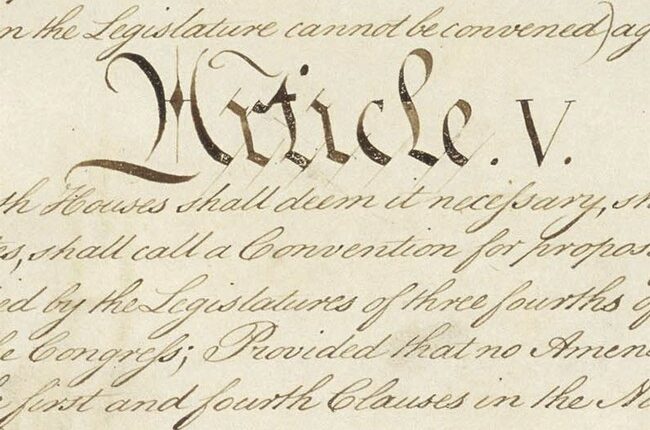 n the Legislature cannot be convened) ag
Article. V.
th Houses shall deem it neceſsary, sh
es, shall call a Convention for propos
ied by the Legislatures of three fourths of
he Congreſs; Provided that no Amen
e first and fourth Clauses in the Ni